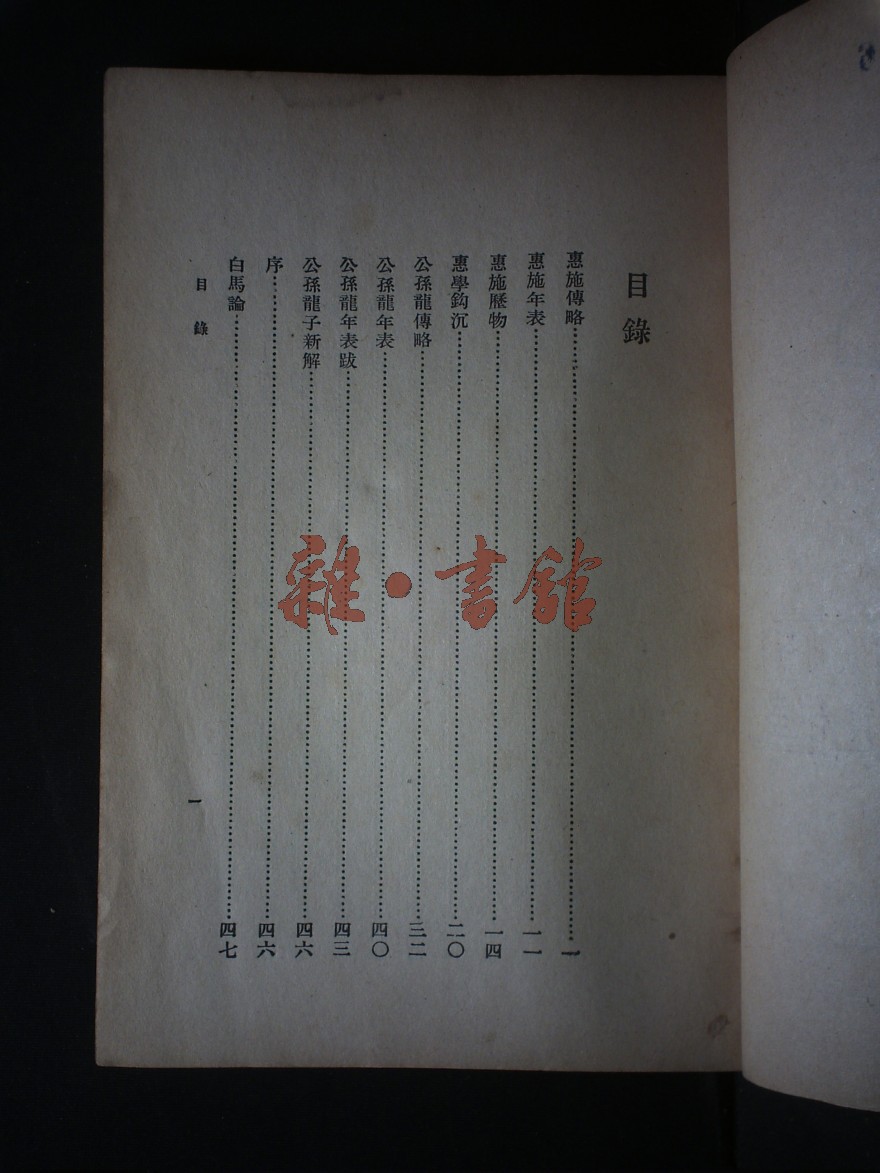 目錄
惠施傳略……一
惠施年表……一一
惠施歷物……一四
惠學鈎沉……二〇
公孫龍傳略……三二
公孫龍年表……四〇
公孫龍年表跋……四三
公孫龍子新解……四六
序……四六
白馬論……四七
目錄
一
雜·書館